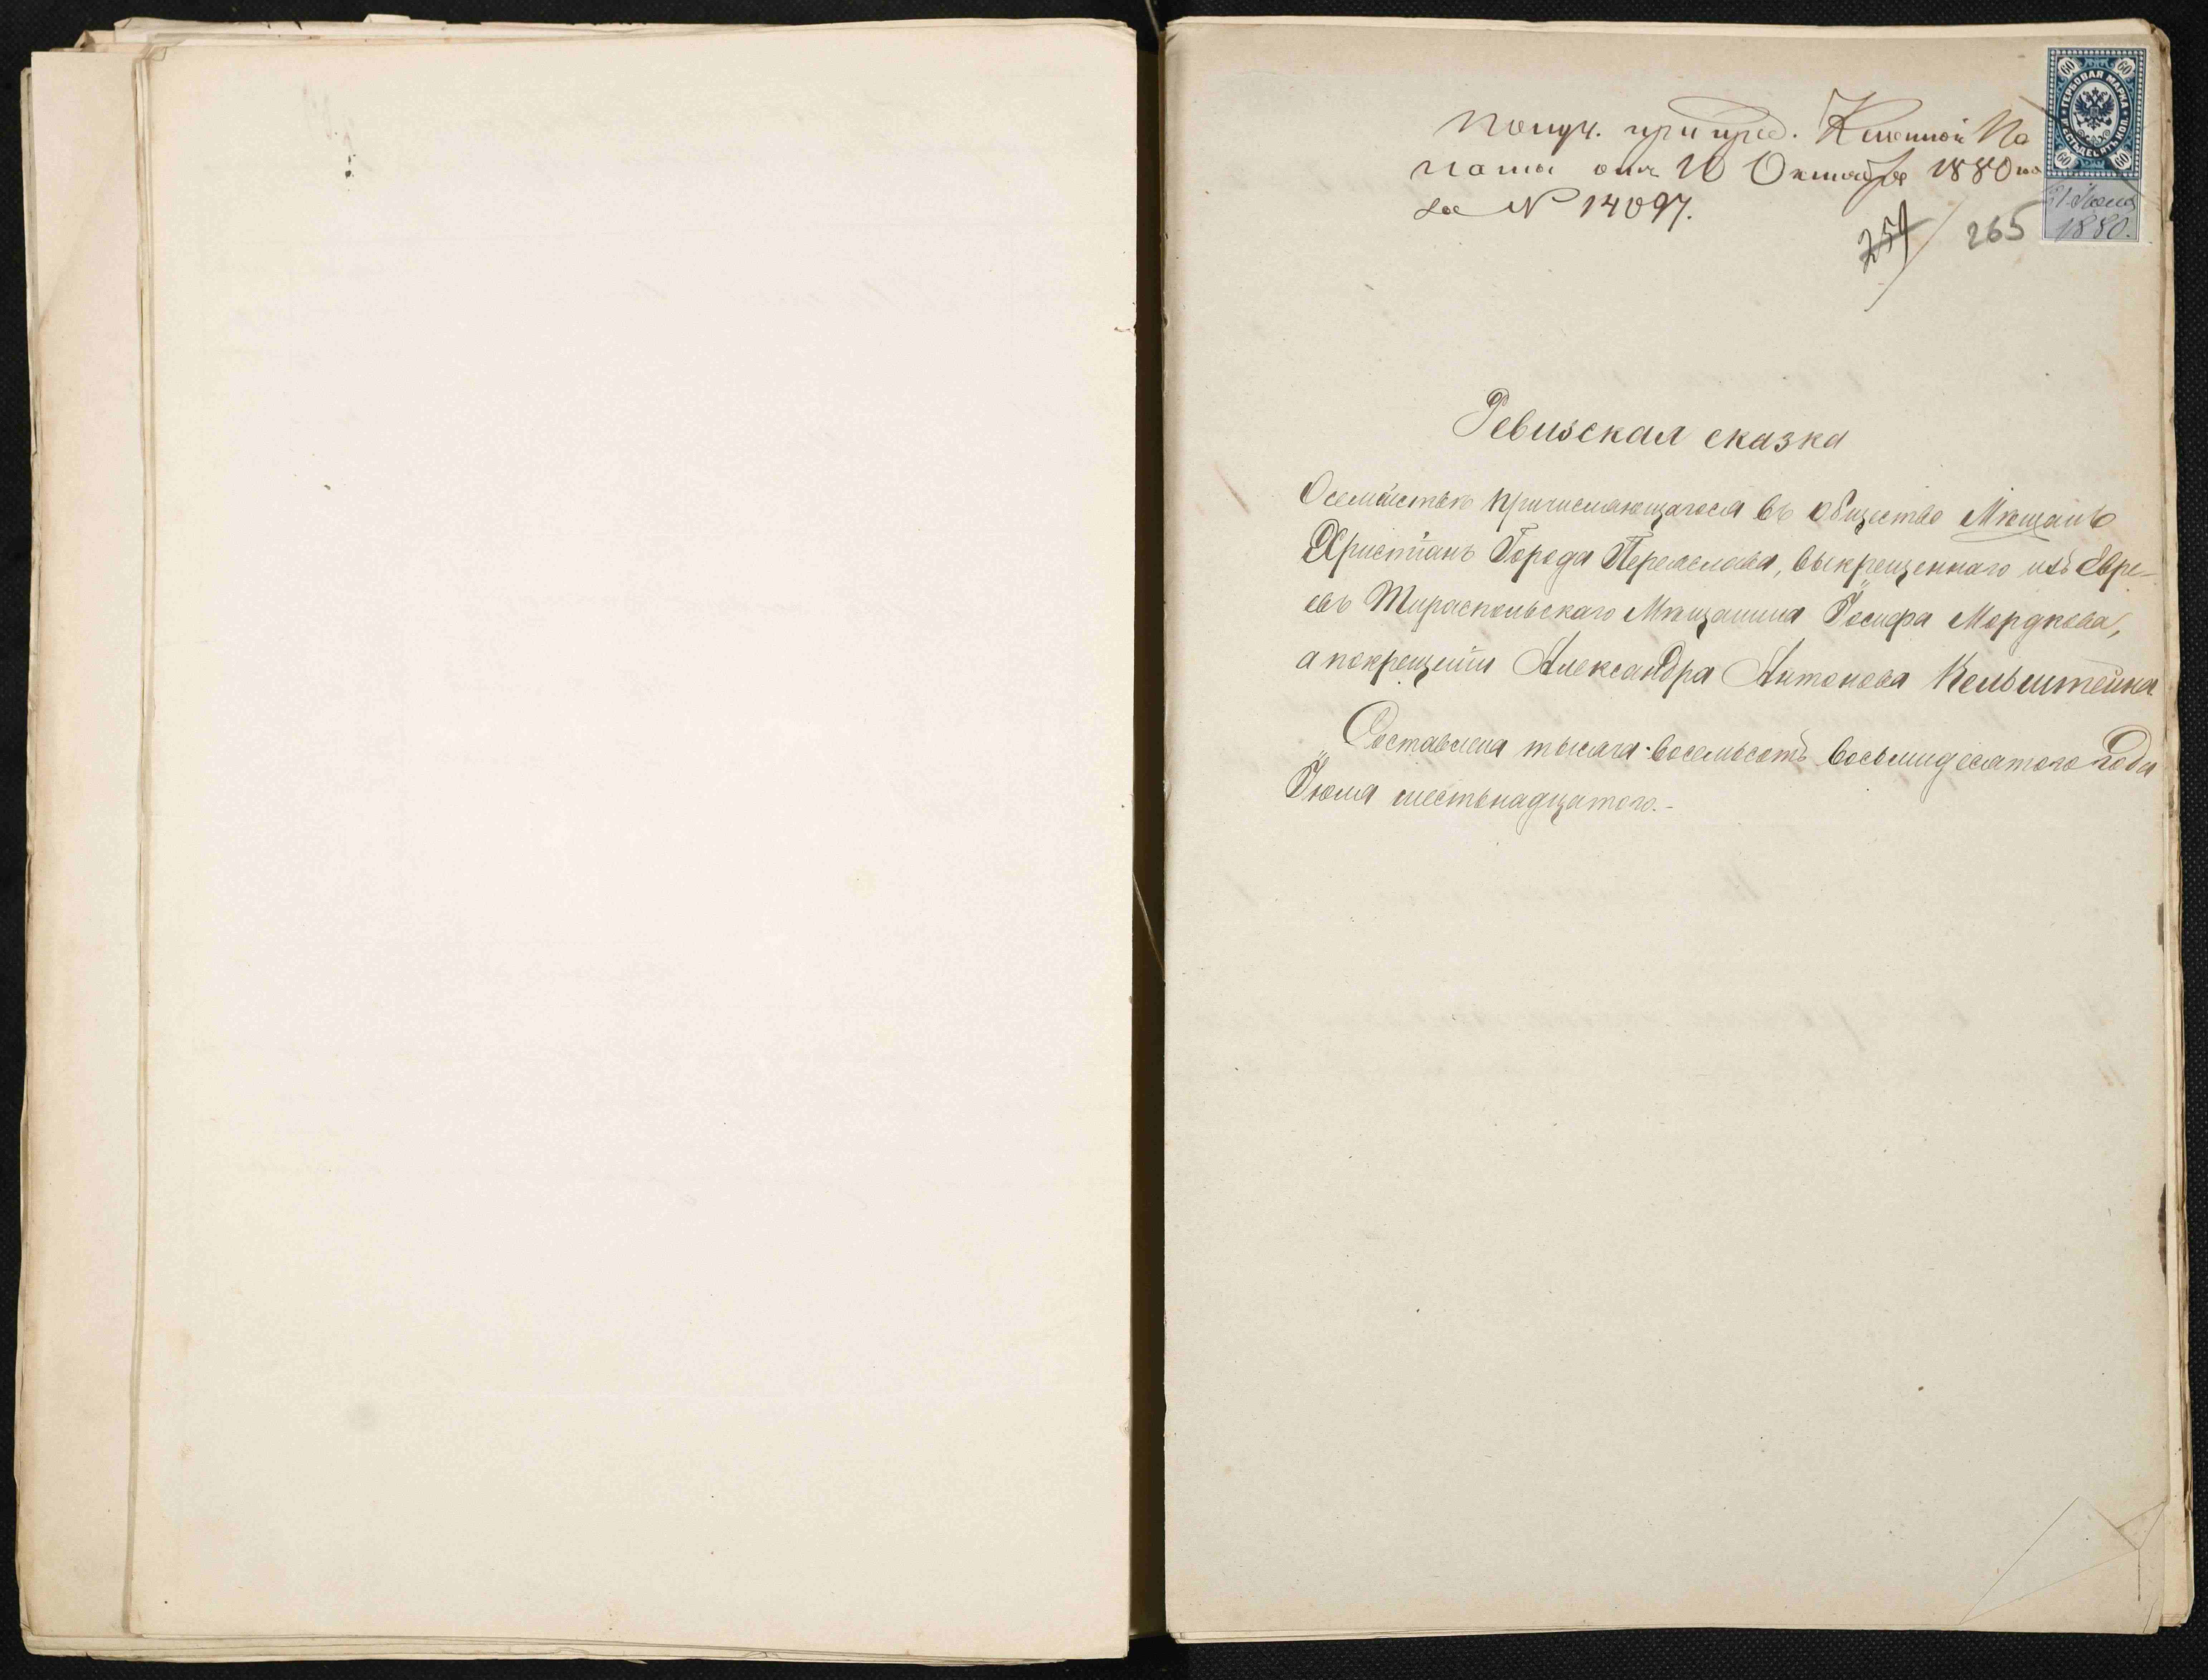 Получ. при пред. Казенной Па
латы отъ 10 Октября 1880 го
за № 14097.
ГЕРБОВАЯ МАРКА
ШЕСТЬДЕСЯТЪ КОП.
60 60 60 60
21 Июня
1880.
257 265
Ревизская сказка
О семействѣ причисляющагося въ общество Мѣщанъ
Христіанъ Города Переяслава, выкрещеннаго изъ Евре-
евъ Тираспольскаго Мѣщанина Іосифа Мордкова,
а покрещеніи Александра Антонова Кельштейна.
Составлена тысяча восемьсотъ восьмидесятого года
Іюня шестьнадцатого.-